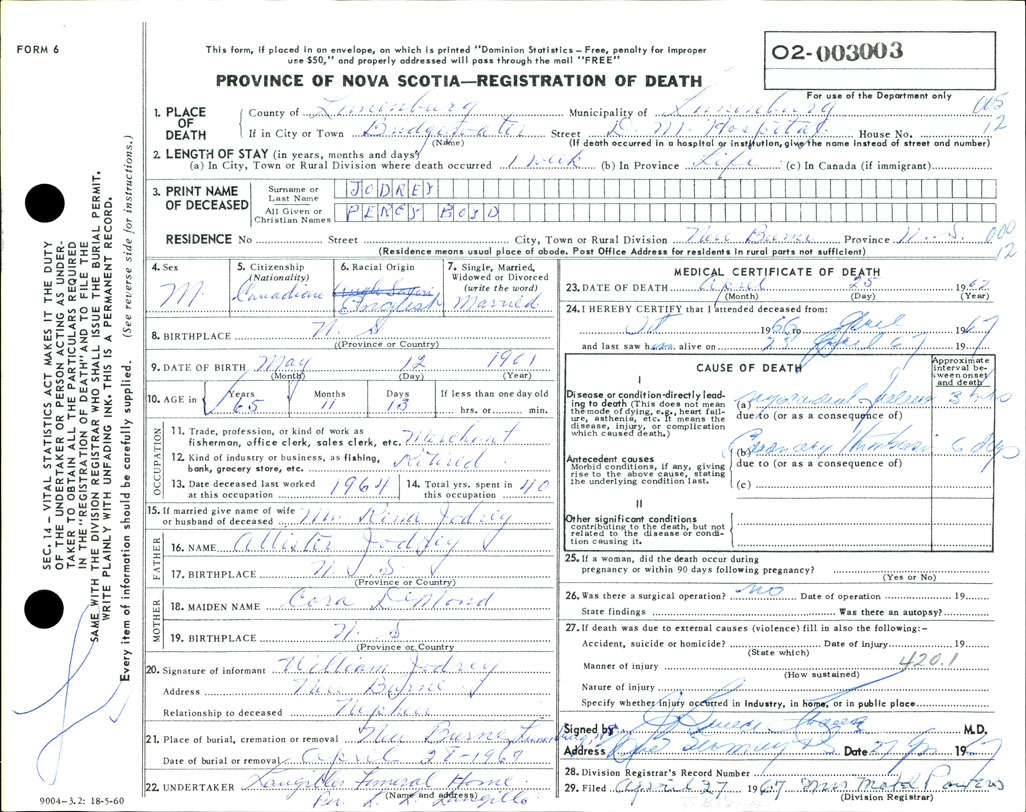 FORM 6
This form, if placed in an envelope, on which is printed "Dominion Statistics – Free, penalty for improper
use $50," and properly addressed will pass through the mail "FREE"
02-003003
For use of the Department only
PROVINCE OF NOVA SCOTIA—REGISTRATION OF DEATH
005
12
1. PLACE OF DEATH
County of Lunenburg Municipality of Lunenburg
If in City or Town Bridgewater Street D. M. Hospital House No.
(Name) (If death occurred in a hospital or institution, give the name instead of street and number)
2. LENGTH OF STAY (in years, months and days)
(a) In City, Town or Rural Division where death occurred 1 week (b) In Province Life (c) In Canada (if immigrant)
3. PRINT NAME OF DECEASED
Surname or Last Name JODREY
All Given or Christian Names PERCY BOYD
RESIDENCE No Street City, Town or Rural Division Province N. S.
000
12
(Residence means usual place of abode. Post Office Address for residents in rural parts not sufficient)
4. Sex M.
5. Citizenship (Nationality) Canadian
6. Racial Origin English
7. Single, Married, Widowed or Divorced (write the word) Married
8. BIRTHPLACE N. S
((Province or Country)
9. DATE OF BIRTH May 12 1901
(Month) (Day) (Year)
10. AGE in Years 65 Months 11 Days 13 If less than one day old hrs. or min.
OCCUPATION
11. Trade, profession, or kind of work as
fisherman, office clerk, sales clerk, etc. Merchant
12. Kind of industry or business, as fishing,
bank, grocery store, etc. Retired
13. Date deceased last worked at this occupation 1964
14. Total yrs. spent in this occupation 40
15. If married give name of wife
or husband of deceased Mrs Jodrey
FATHER
16. NAME Allister Jodrey
17. BIRTHPLACE N. S
(Province or Country)
MOTHER
18. MAIDEN NAME Cora DeMond
19. BIRTHPLACE N. S
(Province or Country
20. Signature of informant William Jodrey
Address
Relationship to deceased Nephew
21. Place of burial, cremation or removal
Date of burial or removal April 28-1967
22. UNDERTAKER Langilles Funeral Home
(Name and address)
Per. Langille
9004-3.2: 18-5-60
MEDICAL CERTIFICATE OF DEATH
23. DATE OF DEATH April 25 1967
(Month) (Day) (Year)
24. I HEREBY CERTIFY that I attended deceased from:
Oct 1966 to April 1967
and last saw him alive on April 67 19
CAUSE OF DEATH
Approximate interval between onset and death
I
Disease or condition directly leading to death (This does not mean the mode of dying, e.g., heart failure, asthenia, etc. It means the disease, injury, or complication which caused death.)
(a)
due to (or as a consequence of)
Antecedent causes
Morbid conditions, if any, giving rise to the above cause, stating the underlying condition last.
(b) Coronary Thrombosis 6 days
due to (or as a consequence of)
(c)
II
Other significant conditions
contributing to the death, but not related to the disease or condition causing it.
25. If a woman, did the death occur during
pregnancy or within 90 days following pregnancy?
(Yes or No)
26. Was there a surgical operation? no Date of operation 19
State findings Was there an autopsy?
27. If death was due to external causes (violence) fill in also the following:–
Accident, suicide or homicide? Date of injury 19
(State which)
Manner of injury 420.1
(How sustained)
Nature of injury
Specify whether injury occurred in Industry, in home, or in public place
Signed by M.D.
Address Date 27 1967
28. Division Registrar's Record Number
29. Filed April 27 1967 Mrs
(Division Registrar)
SEC. 14 – VITAL STATISTICS ACT MAKES IT THE DUTY
OF THE UNDERTAKER OR PERSON ACTING AS UNDER-
TAKER TO OBTAIN ALL THE PARTICULARS REQUIRED
IN THE "REGISTRATION OF DEATH" AND TO FILE THE
SAME WITH THE DIVISION REGISTRAR WHO SHALL ISSUE THE BURIAL PERMIT.
WRITE PLAINLY WITH UNFADING INK. THIS IS A PERMANENT RECORD.
Every item of information should be carefully supplied. (See reverse side for instructions.)